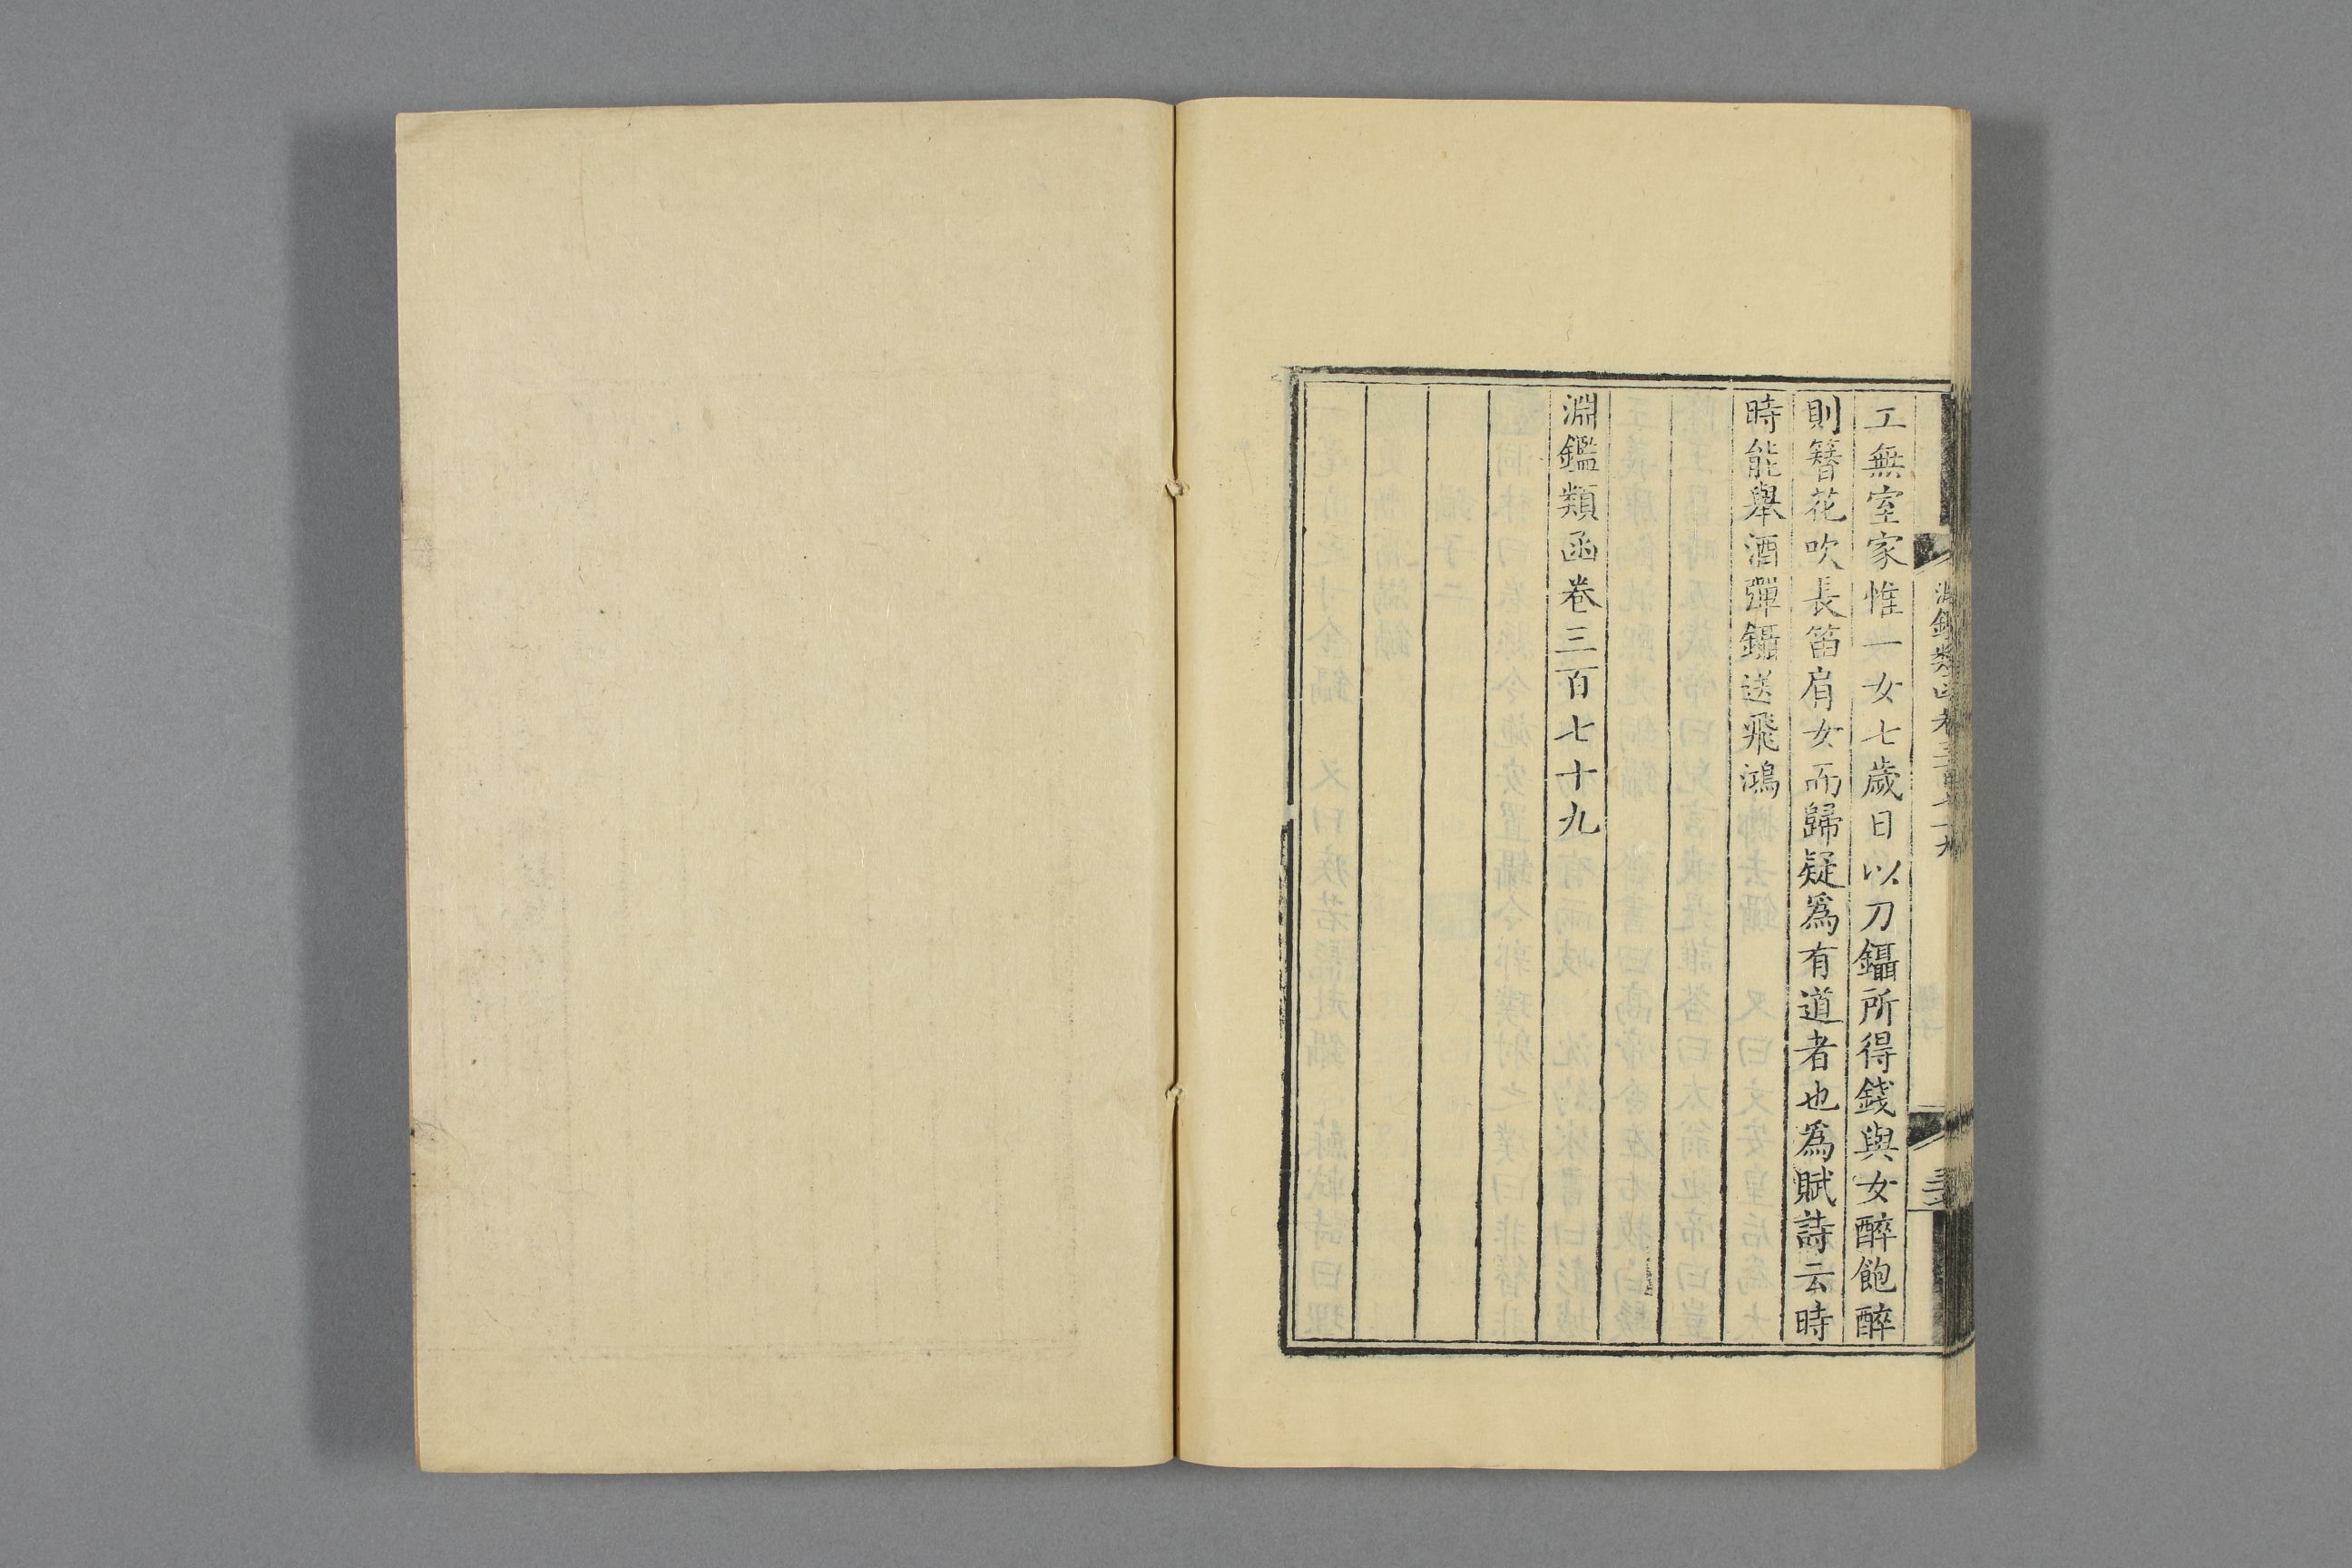 工無室家惟一女七歲日以刀鑷所得錢與女醉飽醉
則簪花吹長笛肩女而歸疑爲有道者也爲賦詩云時
時能舉酒彈鑷送飛鴻
淵鑑類函卷三百七十九